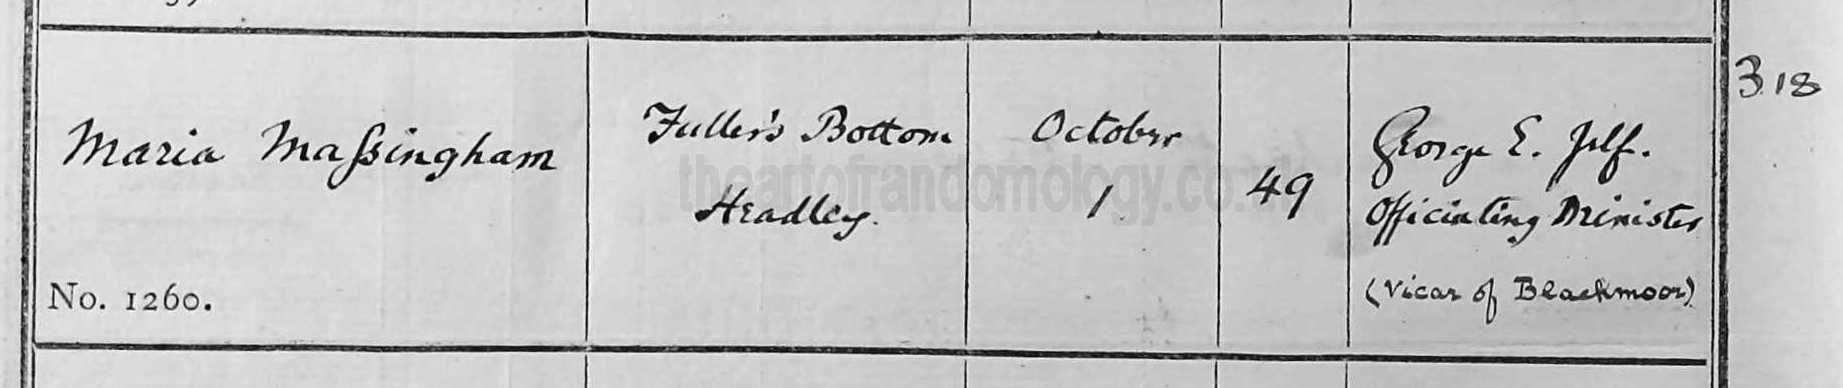 Maria Maſsingham
No. 1260.
Fuller's Bottom
Headley.
October
1
49
George E. Jelf.
Officiating Minister
(Vicar of Blackmoor)
318
theartofrandomology.co.uk